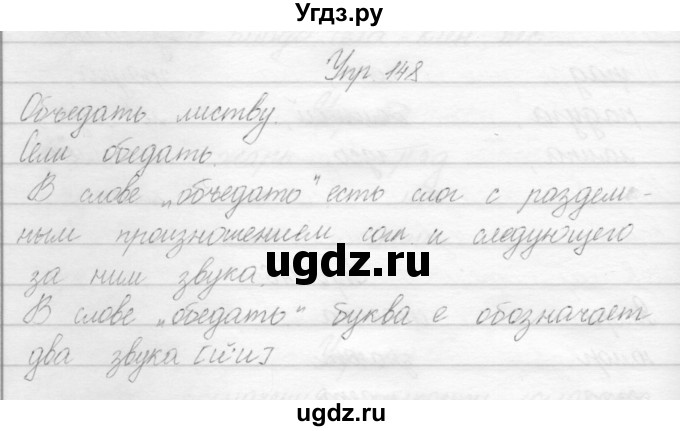 Угдз.ру
Упр. 148
Объедать листву.
Сели обедать.
В слове „объедать" есть слог с раздель-
ным произношением согл. и следующего
за ним звука.
В слове „обедать" буква е обозначает
два звука [й'и]
ugdz.ru
ugdz.ru